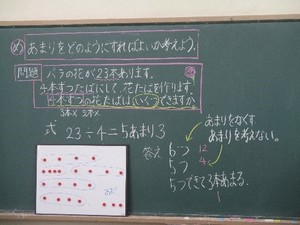 め あまりをどのようにすればよいか考えよう。
問題 バラの花が23本あります。
4本ずつたばにして、花たばを作ります。
4本ずつの花たばは、いくつできますか
3本× 2本×
式 23÷4=5あまり3
あまりをなくす
あまりを考えない。
答え 6つ 12
5つ 4
5つできて3本あまる。
1